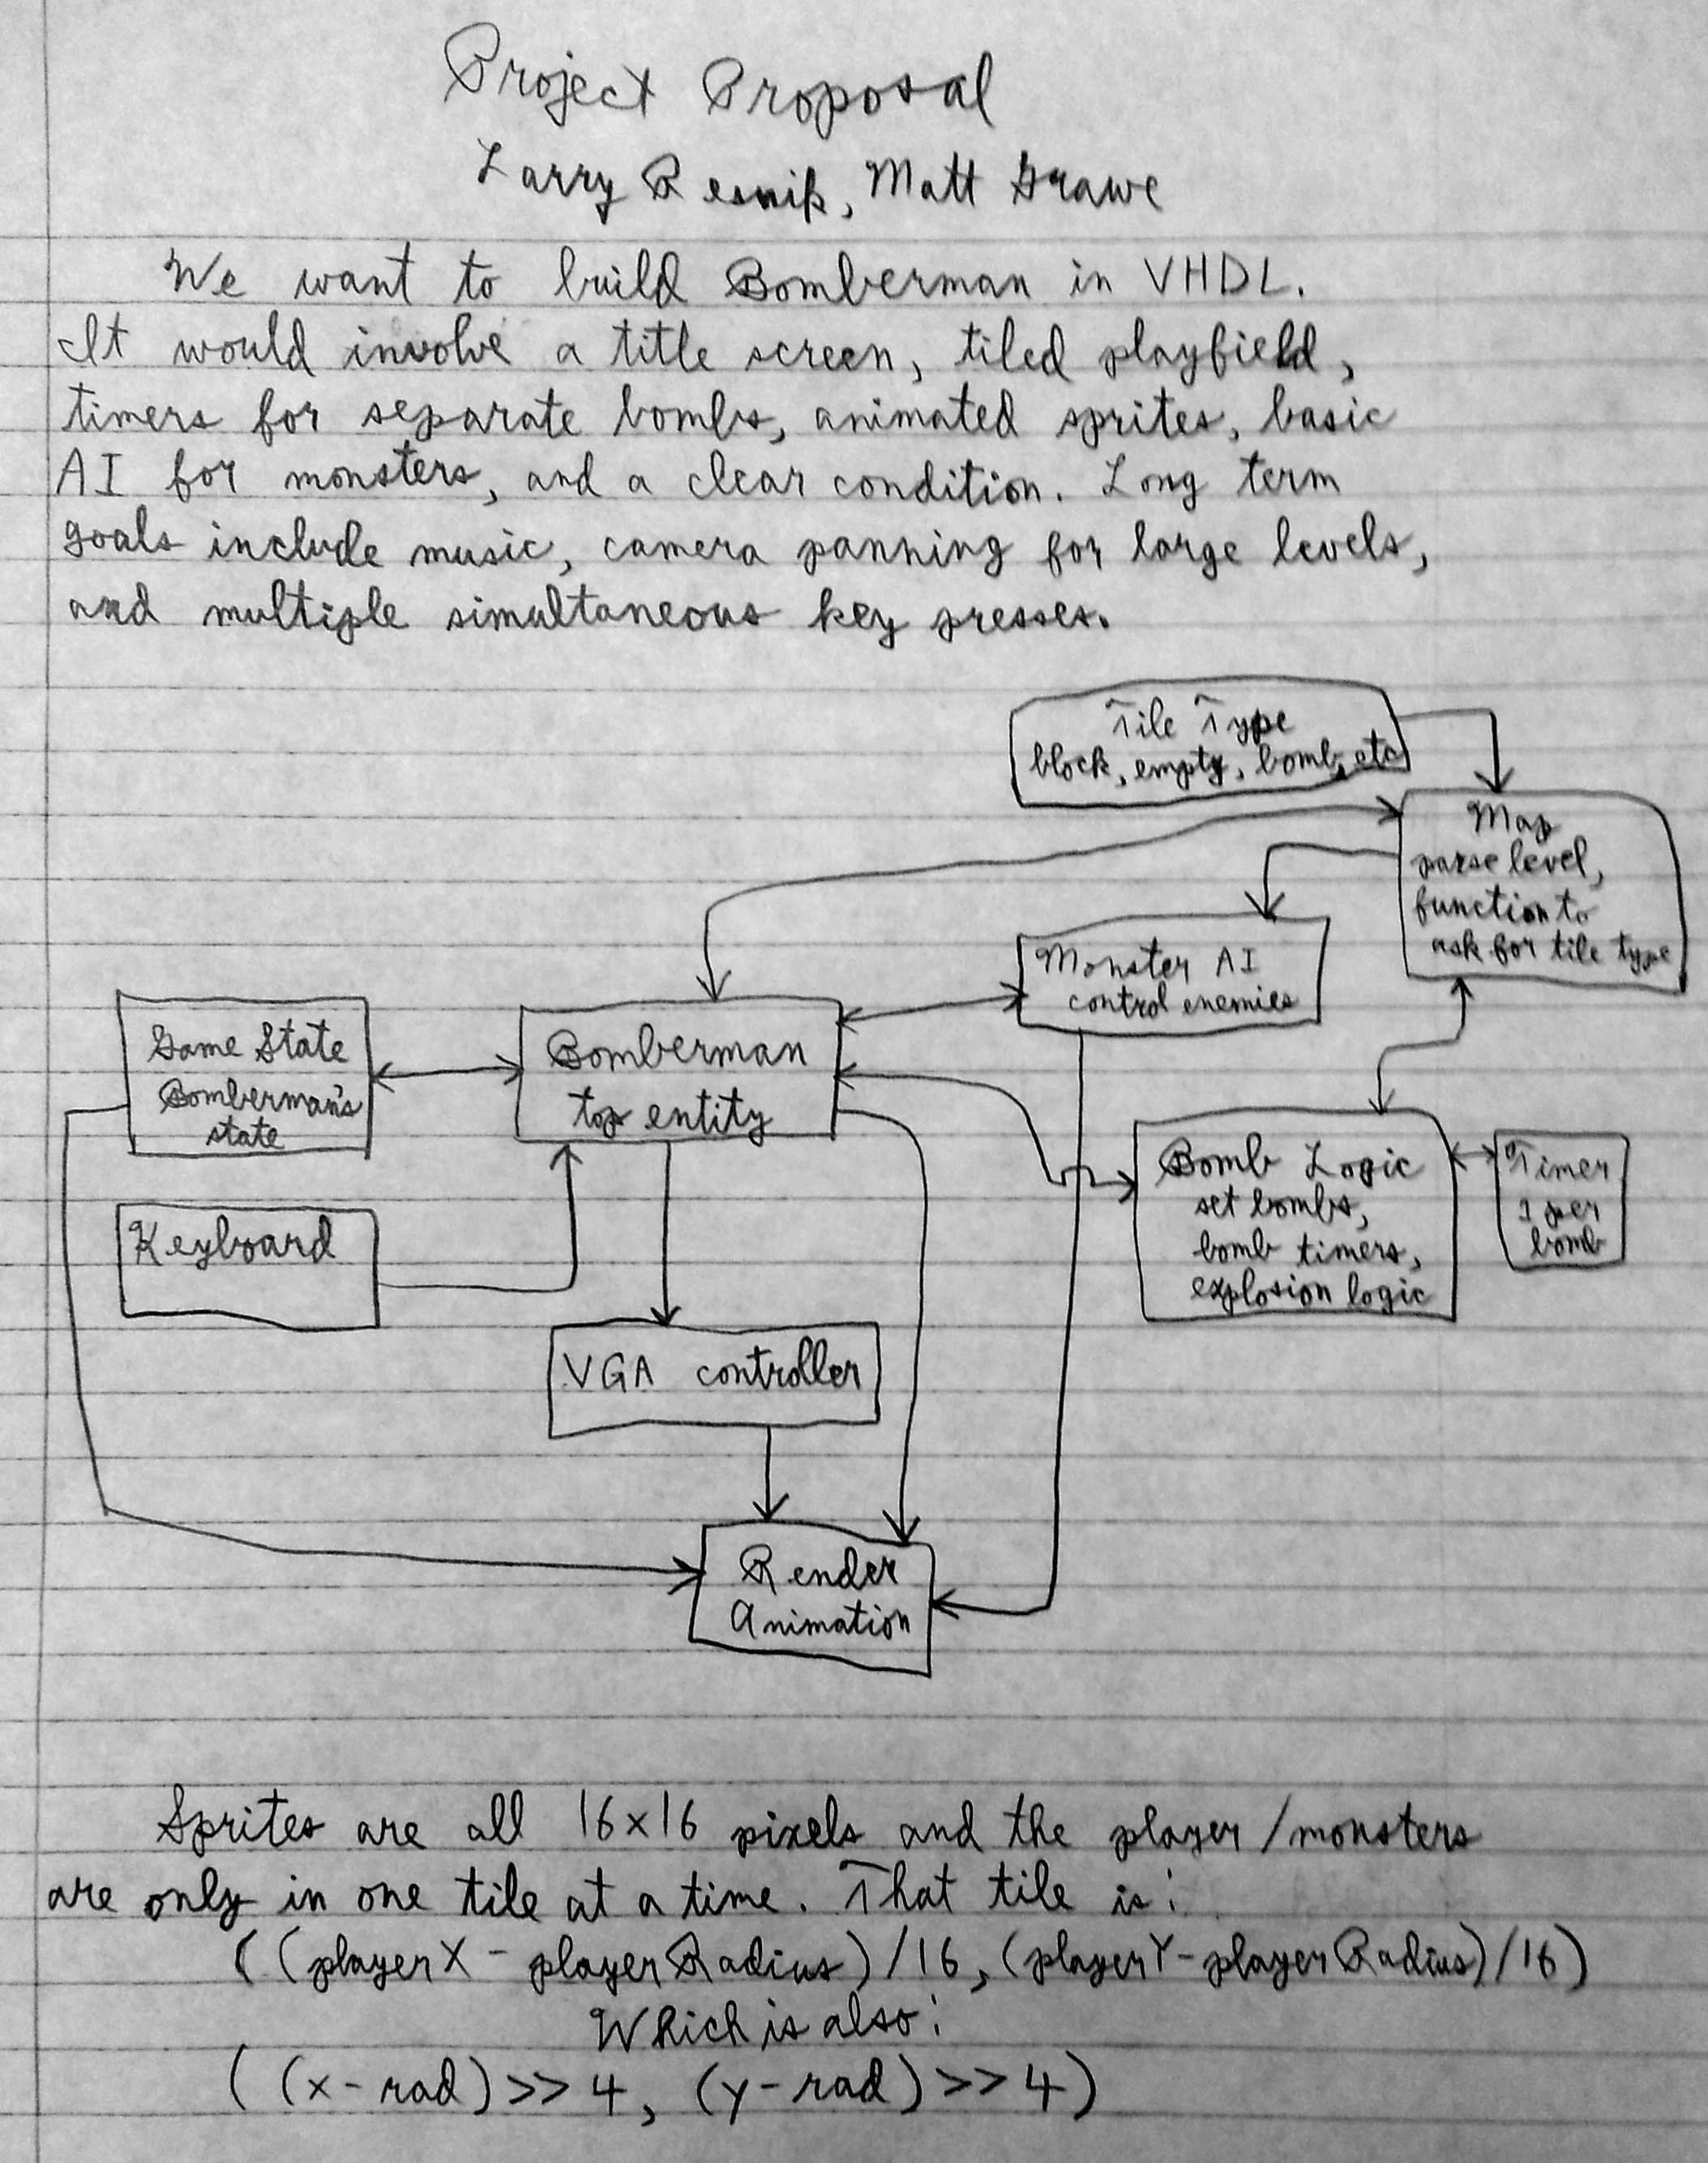 Project Proposal
Larry Resnik, Matt Grawe
We want to build Bomberman in VHDL.
It would involve a title screen, tiled playfield,
timers for separate bombs, animated sprites, basic
AI for monsters, and a clear condition. Long term
goals include music, camera panning for large levels,
and multiple simultaneous key presses.
Tile Type
block, empty, bomb, etc
Map
parse level,
function to
ask for tile type
Monster AI
control enemies
Game State
Bomberman's
state
Bomberman
top entity
Bomb Logic
set bombs,
bomb timers,
explosion logic
Timer
1 per
bomb
Keyboard
VGA controller
Render
Animation
Sprites are all 16x16 pixels and the player/monsters
are only in one tile at a time. That tile is:
((playerX - playerRadius)/16, (playerY-playerRadius)/16)
Which is also:
((x-rad)>>4, (y-rad)>>4)